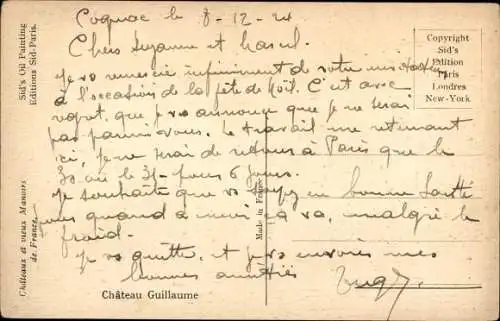 Cognac le 8-12-24
Chers Suzanne et Marcel.
Je vs remercie infiniment de votre
à l'occasion de la fête de Noël. C'est avec
regret, que je vs annonce que je ne serai
pas parmi vous. Le travail me retenant
ici, je ne serai de retour à Paris que le
30 ou le 31 - pour 6 jours.
Je souhaite que vs soyez en bonne Santé
quand à moi ça va, malgré le
froid.
Je vs quitte, et je vs envoies mes
bonnes amitiés
Château Guillaume
Copyright
Sid's
Edition
Paris
Londres
New-York.
Sid's Oil Painting
Editions Sid-Paris.
Châteaux et vieux Manoirs
de France.
Made in France